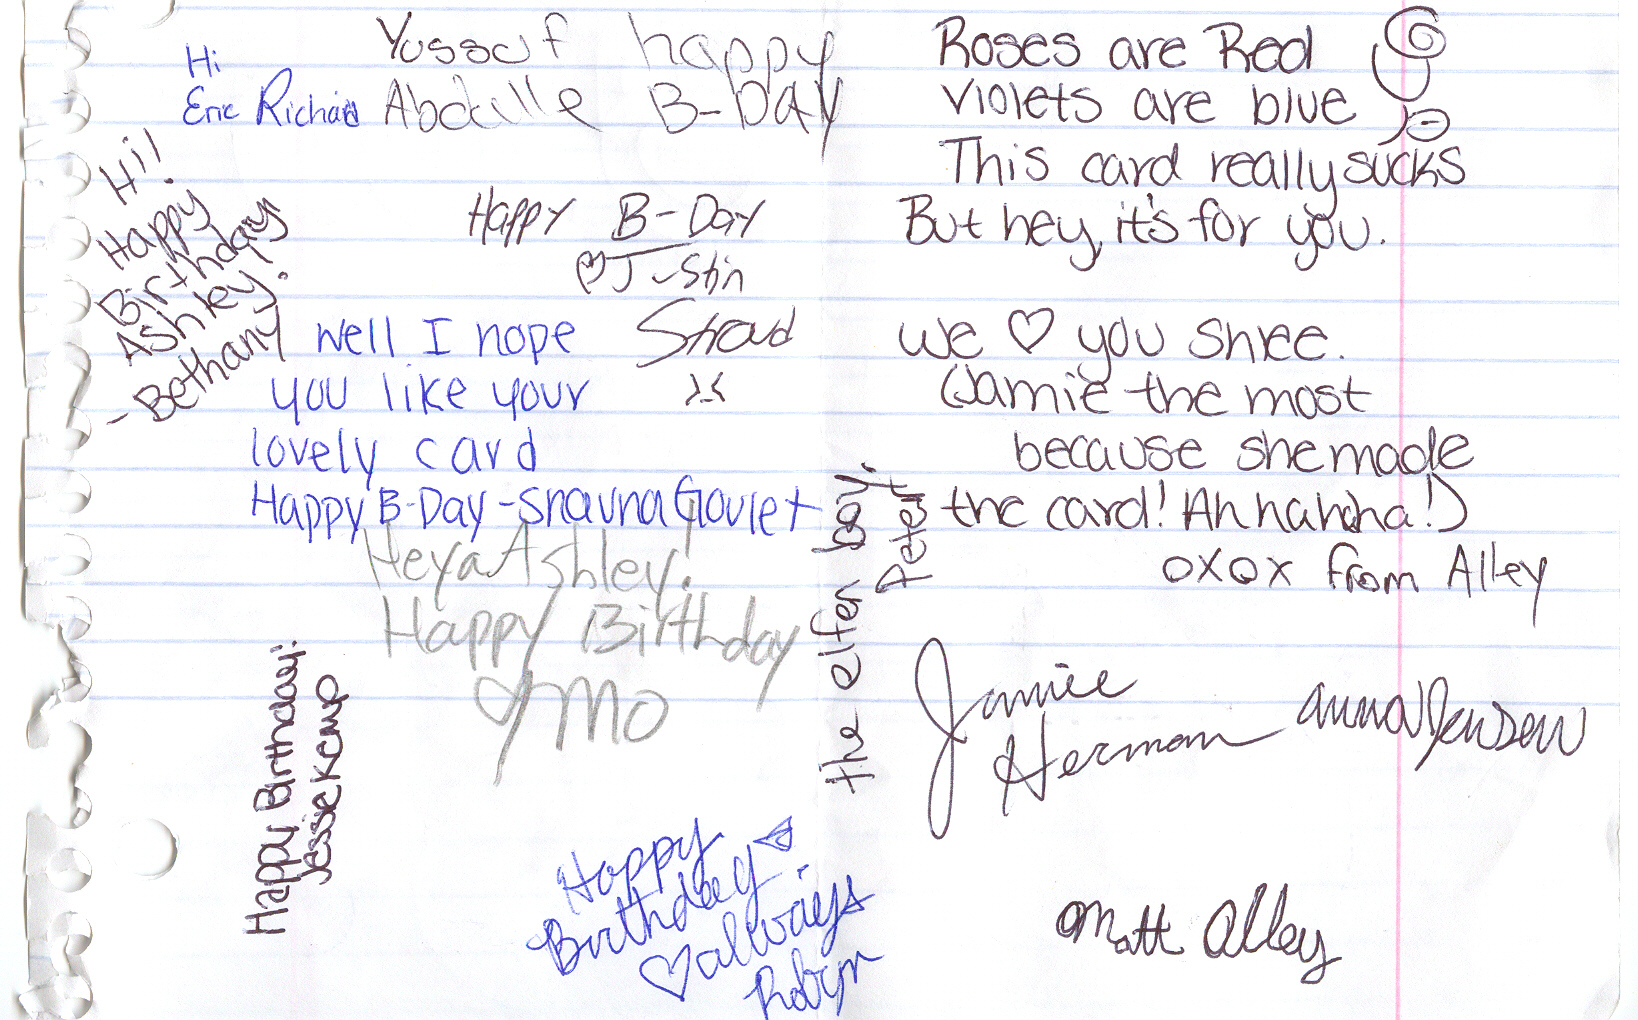 Hi
Eric Richard
Yussuf
Abdulle
happy
B-Day
Hi!
Happy
Birthday
Ashley!
- Bethany
Happy B-Day
♡ Justin
Stroud
Well I hope
you like your
lovely card
Happy B-Day - Shavna Goulet
Heya Ashley!
Happy Birthday
♡ Mo
Happy Birthday!
Jessie Kemp
Happy
Birthday
♡ allways
Robyn
the elfen boy,
Peter
Roses are Red
violets are blue
This card really sucks
But hey, it's for you.
We ♡ you Shlee.
(Jamie the most
because she made
the card! Ah hahaha!)
oxox from Alley
Jamie
Herman
anna Jensen
Matt Alley